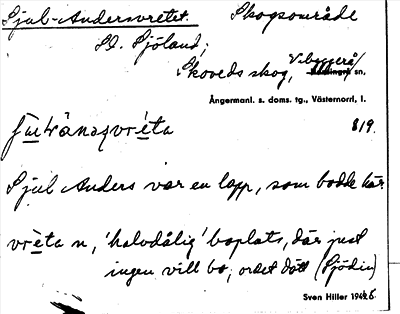 Sjul-Andersvretet. Skogsområde
St. Sjöland;
Skoveds skog, Vibyggerå sn.
Ångermanl. s. doms. tg., Västernorrl. l.
819.
Sjul Anders var en lapp, som bodde här
vrèta n, 'halvdålig' boplats, där just
ingen vill bo; ordet dött (Sjödin)
Sven Hiller 1946.